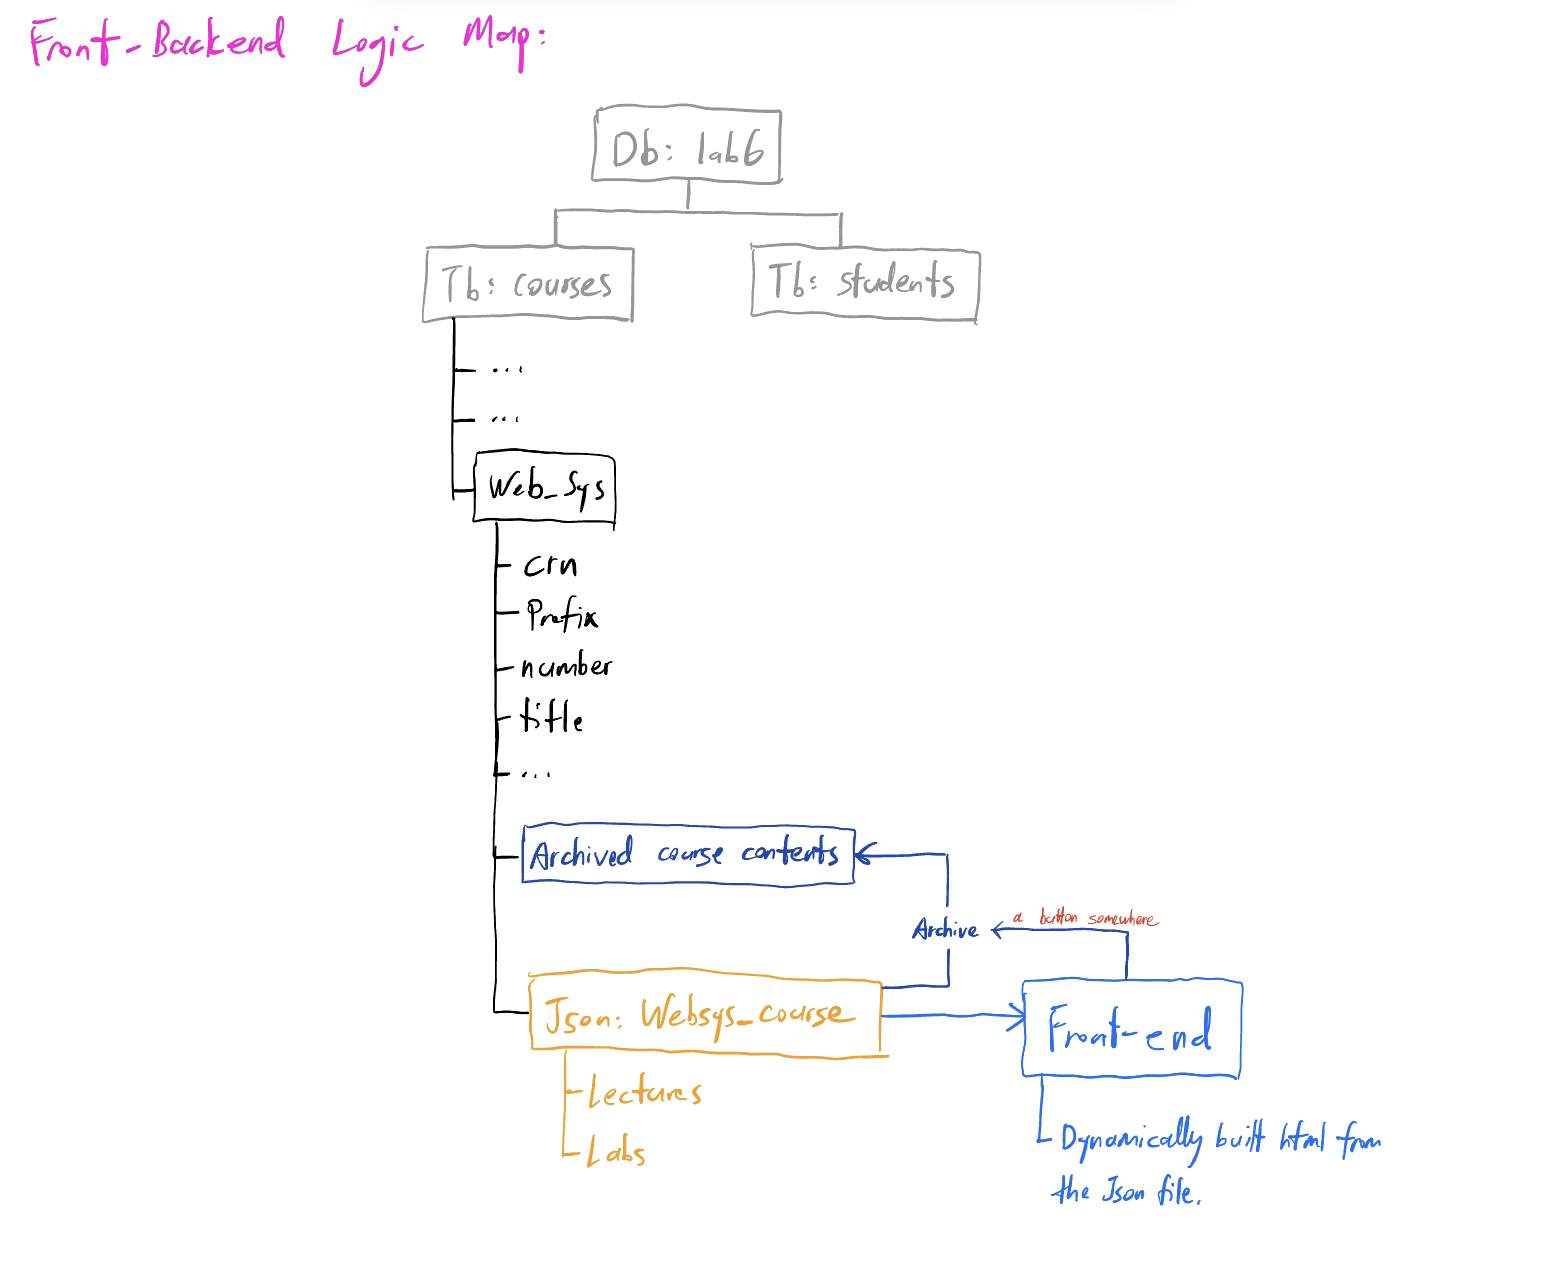 Front-Backend Logic Map:
Db: lab6
Tb: courses
Tb: students
...
...
Web_Sys
crn
Prefix
number
title
...
Archived course contents
Archive
a button somewhere
Json: Websys_course
Front-end
Lectures
Labs
Dynamically built html from
the Json file.